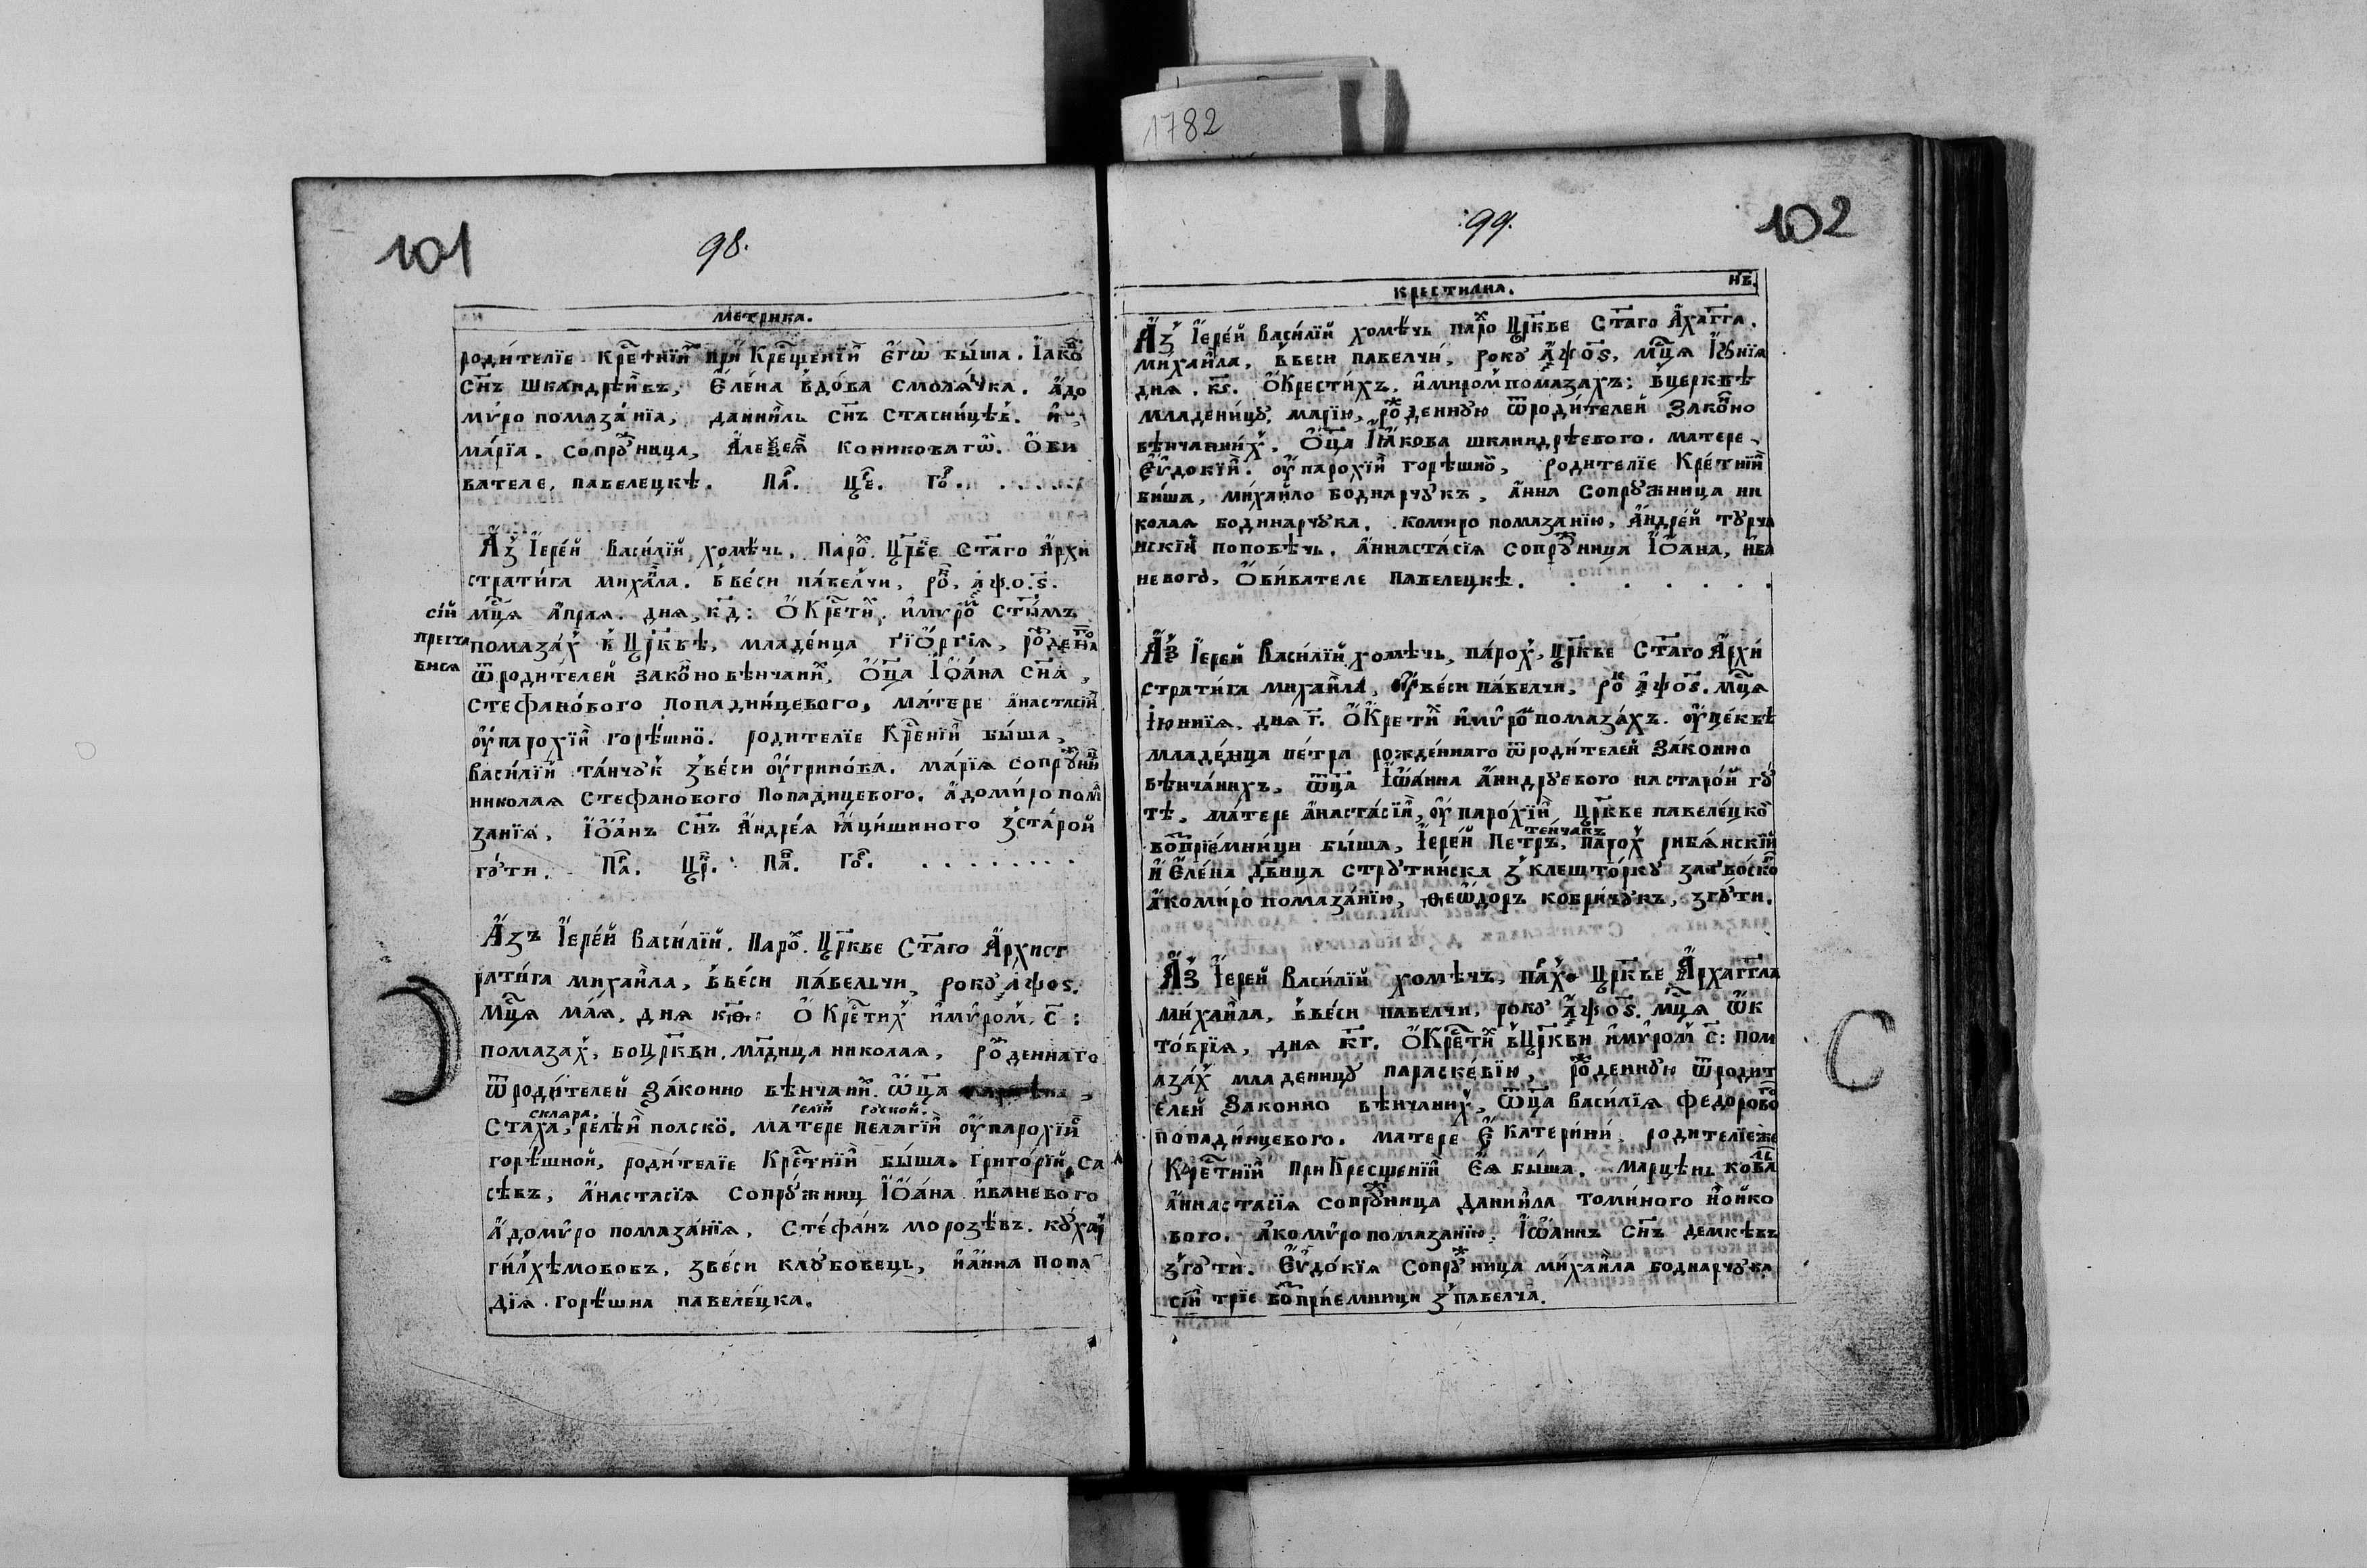 1782
101
98.
Метрика.
родителїе Крет̑нїй при Крещенїи Єгѡ быша. Іако̑
Сн҃ъ Шкандрѣйвъ, Єлена вдова смолячка. Адо
муро помазанїа, даниль Сн҃ъ Стасницѣв. и
марїа. сопру̑ница, Алеѯея кониковагѡ. Оби
вателе, павелецкѣ. Па̑. Це̑. Го̑.
Аз Іерей Василїй хомѣчь, Паро̑. Црк҃ве Ст҃аго Архи
стратига михаила. ввеси павелчи, ро̑, ҂аѱ.о.ѕ.
сїй
преста
вися
мц҃я Апрля. дня, к҃д: О Крети̑, имуро̑ ст҃ымъ
помазах в Црк҃вѣ, младенца гїѺргїя, ро̑дена̑
ѿродителей законо вѣнчани̑, Оц҃а ІѺана Сн҃а,
стефанового попадинцевого, матере анастасїи
оу парохїи горѣшно̑. родителїе Кре̑нїи быша,
Василїй танчук звеси оугринова. марїя сопру̑ни̑
николая Стефанового Попадицевого. Адомѵро пома
занїя, ІѺанъ Сн҃ъ Андрея Яцишиного зстарой
гути. Па̑. Цр̑. Па̑. Го̑.
Азъ Іерей Василїй. Паро̑. Црк҃ве Ст҃аго Архист
ратига михаила, ввеси павельчи, року ҂аѱоѕ.
Мц҃я мая, дня к҃ѳ: О Кре̑тих имѵром, с҃:
помазах, воЦрк҃ви. мл҃дница николая, ро̑деннаго
ѿродителей законно вѣнчани̑. Ѡц҃а
скляра. релїй руской.
Стаха, релѣи полско̑. матере пелагїи оупарохїи
горѣшной, родителїе Кре̑тнїи быша. Григорїй Са
сѣвъ, Анастасїя сопружниц ІѺана иваневого
Адомѵро помазанїя, Стефанъ морозѣвъ. кухар
гилхѣмововъ, звеси клубовець, иАнна попа
дїя горѣшна павелецка.
99.
102
Крестилна.
н҃в.
Аз Іерей Василїй хомѣчь паро̑ Црк҃ве Ст҃аго Аха҃гга.
михаила, ввеси павелчи, року ҂аѱоѕ, мц҃я Іунїя
дня. к҃ѕ. ОКрестихъ. имиром помазахъ: вцерквѣ
младеницу марїю, ро̑денную ѿродителей Зако̑но
вѣнчанних, Оц҃а Іякова шкандрѣевого. матере
Єѵдокїи. оу парохїи горѣшно̑, родителїе Кретнїи
виша, михайло боднарчукъ, Анна сопружница ни
колая бодинарчука. комиро помазанїю, Андрей турча
нскїй поповѣчь. Аннастасїя сопру̑ница ІѺана, ива
невого, Обивателе павелецкѣ.
Аз Іерей Василїй хомѣчь, парох, Црк҃ве Ст҃аго Архи
стратига михаила, оувеси павелчи, ро̑ ҂аѱоѕ. мц҃я
Іюннїя. дня г҃. ОКрети̑ имѵро̑ помазахъ. оуцеквѣ
младенца петра рожденнаго ѿродителей законно
вѣнчанихъ, ѿц҃а Іѡанна Андруевого настарой гу
тѣ, матере Анастасїи, оу парохїи Црк҃ве павелецко̑
тенчакъ
во̑прїемници быша, Іерей Петръ, парох рибянскїй
и Єлена двица струтинска з клешторку загвоско̑
Акомиро помазанїю, ѳеѡдоръ кобричукъ, згути.
Аз Іерей Василїй хомѣчъ, парох Црк҃ве Архаг҃гла
михаила, ввеси павелчи, року ҂аѱоѕ. мц҃я ѡк
товрїя, дня к҃г. ОКре̑ти̑ вЦрк҃ви имѵром с҃: пом
азах младеницу параскевїю, ро̑денную ѿродит
елей Законно вѣнчаних, ѿц҃а василїя федорово̑
попадинцевого. матере Єкатерини, родителїеже
Кре̑тнїи приКресщенїи Єя быша. марцѣнь кова̑ль
Аннастасїя сопру̑ница даниила томиного ионко
вого. Акомѵро помазанїю: Іѡаннъ Сн҃ъ демкѣвъ
згути. Єѵдокїя сопру̑ница михаила боднарчука
сїи трїе во̑прїемници з павелча.
C